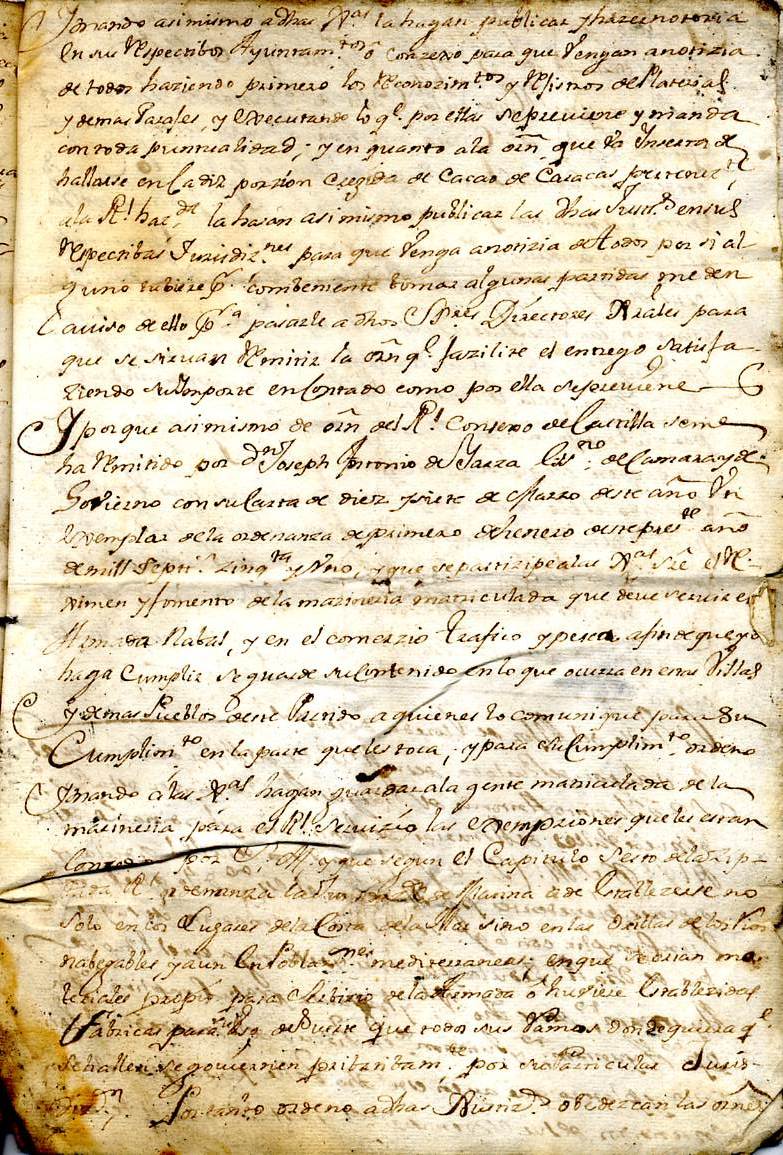 Y mando asimismo a dhas Vªs la hagan publicar y hazer notoria
en sus respectibos Ayuntamtos ô Conzexo para que tengan a notizia
de todos haziendo primero los reconozimtos y rexistros de Materias
y demas Parajes, y executando lo q.e por ellas se previene y manda
con toda puntualidad; y en quanto a la orñ que va Inserta de
hallarse en Cadiz porzion Crezida de Cacao de Caracas pertenezte
a la Rl hacda la harán asi mismo publicar las dhas Justas en sus
respectibas Jurisdiznes para que tenga a notizia de todos por si al
guno tubiere pr combeniente tomar algunas partidas me den
aviso de ello pra pasarle a dhos Sres Directores Grãles para
que se sirvan remitir la orñ qe fazilite el entrego satisfa
ziendo su Ymporte en Contado como por ella se previene
Y porque asimismo de orñ del Rl Consexo de Castilla se me
ha remitido por dn Joseph Antonio de Yarza Essno de Camara y de
Govierno con su Carta de diez y siete de Marzo de este año Un
exemplar de la ordenanza de primero de henero de este preste año
de mill septs zinqta y Uno, y que se partizipe a las Vªs sre el Re
ximen y fomento de la marineria matriculada que deve servir en
Armada Nabal, y en el comerzio trafico y pesca a fin de que yo
haga Cumplir se guarde su Contenido en lo que ocurra en estas Villas
y demas Pueblos de este Partido a quienes lo comunique para su
Cumplimto en la parte que les toca; y para el Cumplimto ordeno
Y mando á las Vªs hagan guardar a la gente matriculada de la
marineria para el Rl Servizio las exempziones que les estan
por S. M. y que segun el Capitulo Sesto de la zip
tada Rl ordenanza la de Marina a de establezerse no
solo en los Lugares de la Costa de la Mar sino en las Orillas de los Rios
nabegables y aun en Poblaznes mediterraneas; en que se crian ma
teriales propis para Serbizio de la Armada ô huviese establezidas
fabricas para su Uso de suerte que todos sus Ramos donde quiera qe
se hallen se goviernen pribatibamte por su particular Juris
dizn Por tanto ordeno a dhas obedezcan las ornes